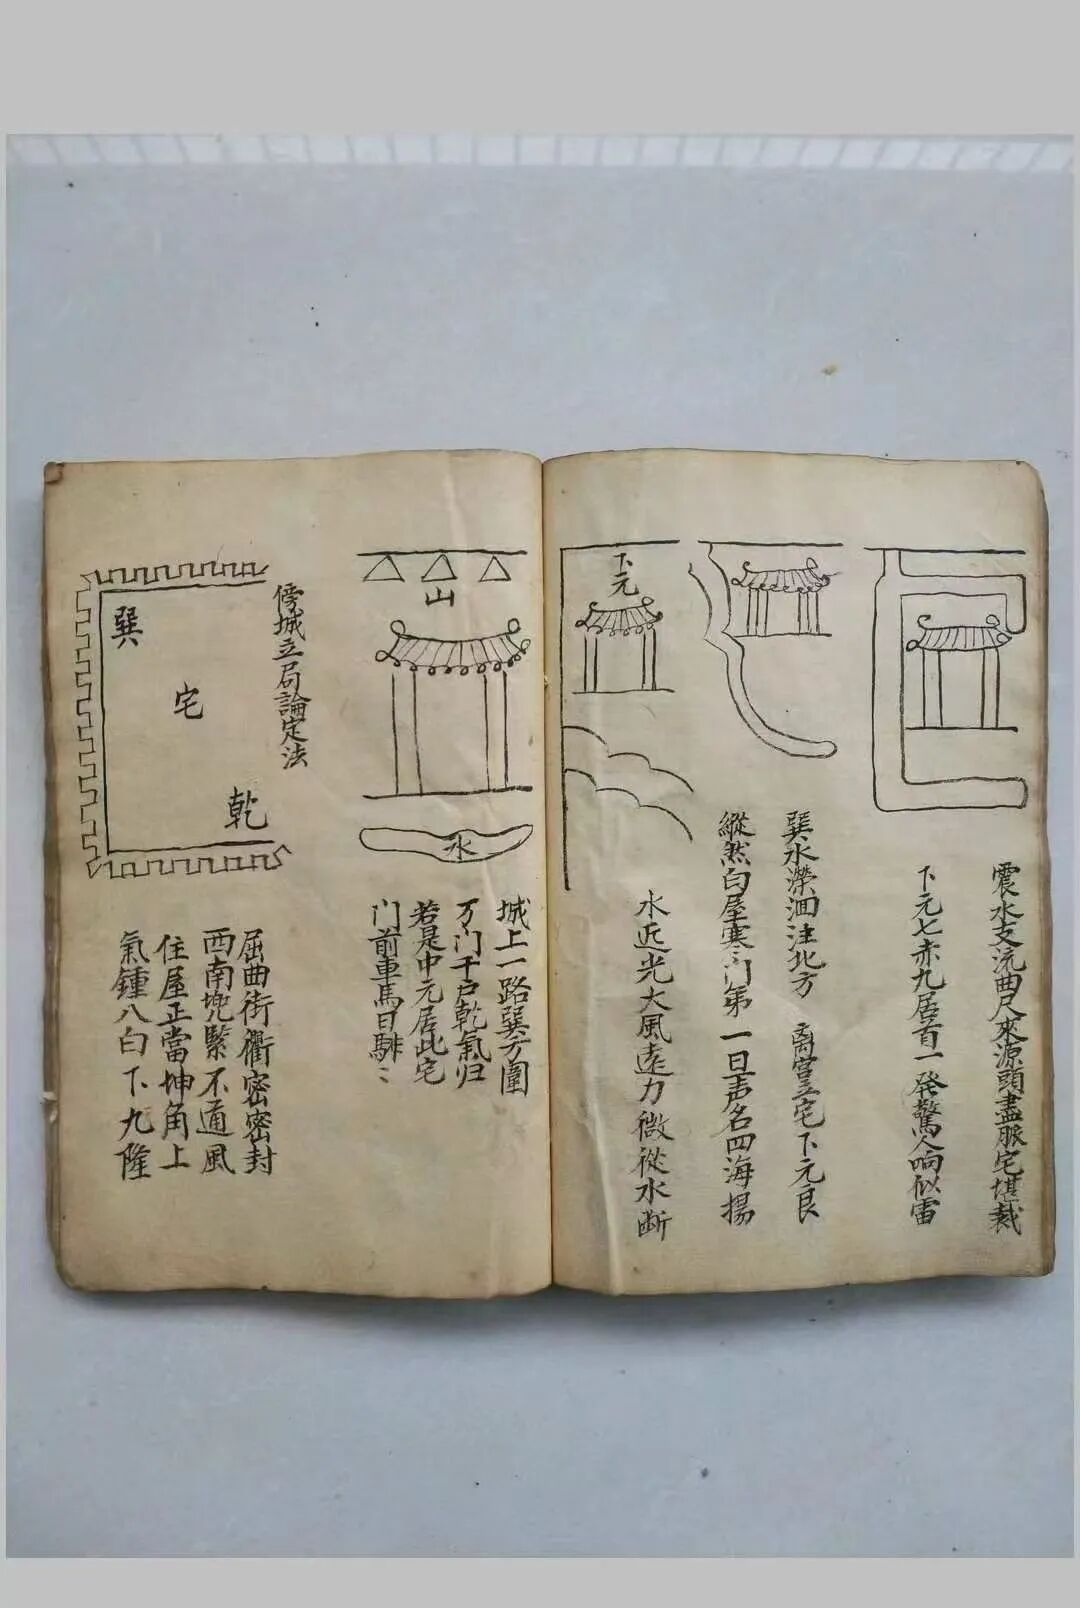 震水支流曲尺來源頭盡脈宅堪裁
下元七赤九居首一發驚人响似雷
巽水瀠洄注北方 离宮立宅下元良
縱然白屋寒门第一旦声名四海揚
下元
水近光大風遠力微從水断
山
水
城上一路巽方圍
万门千户乾氣归
若是中元居此宅
门前車馬日騑〻
傍城立局論定法
巽
宅
乾
屈曲街衢密密封
西南兜緊不通風
住屋正當坤角上
氣鍾八白下九隆